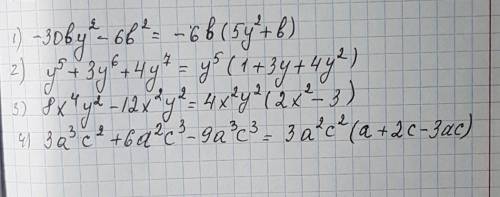 1) -30by² - 6b² = -6b(5y² + b)
2) y⁵ + 3y⁶ + 4y⁷ = y⁵(1 + 3y + 4y²)
3) 8x⁴y² - 12x²y² = 4x²y²(2x² - 3)
4) 3a³c² + 6a²c³ - 9a³c³ = 3a²c²(a + 2c - 3ac)